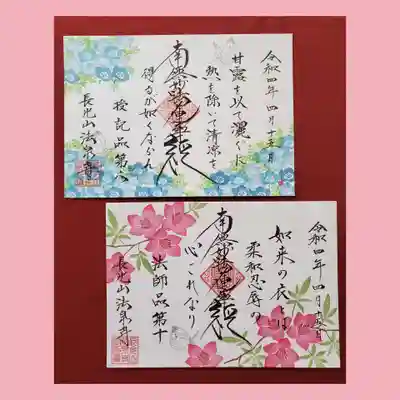 令和四年四月十五日
甘露を以て灑ぐに
熱を除いて清涼を
南無妙法蓮華経
得るが如くならん
授記品第六
長光山法泉寺
令和四年四月十五日
如来の衣とは
柔和忍辱の
南無妙法蓮華経
心これなり
法師品第十
長光山法泉寺